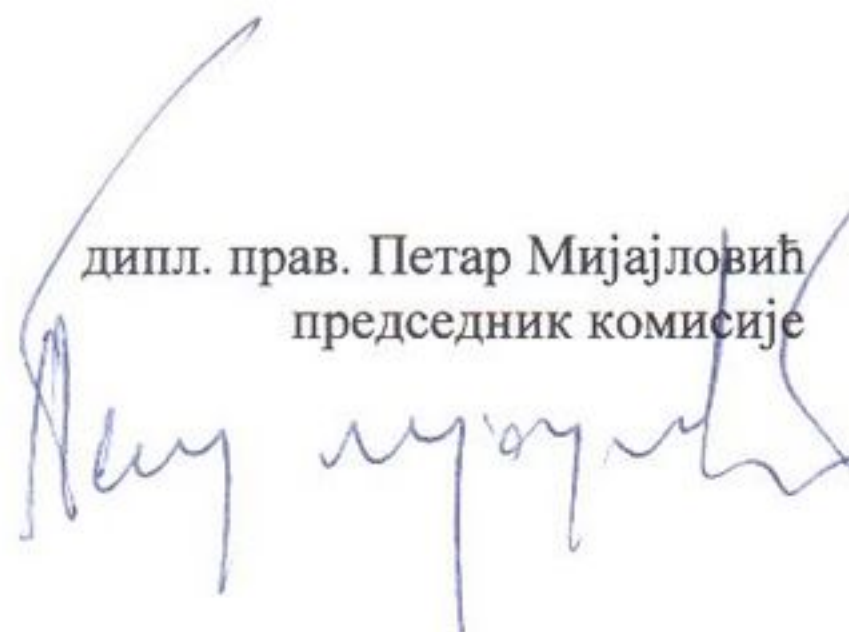 дипл. прав. Петар Мијајловић
председник комисије